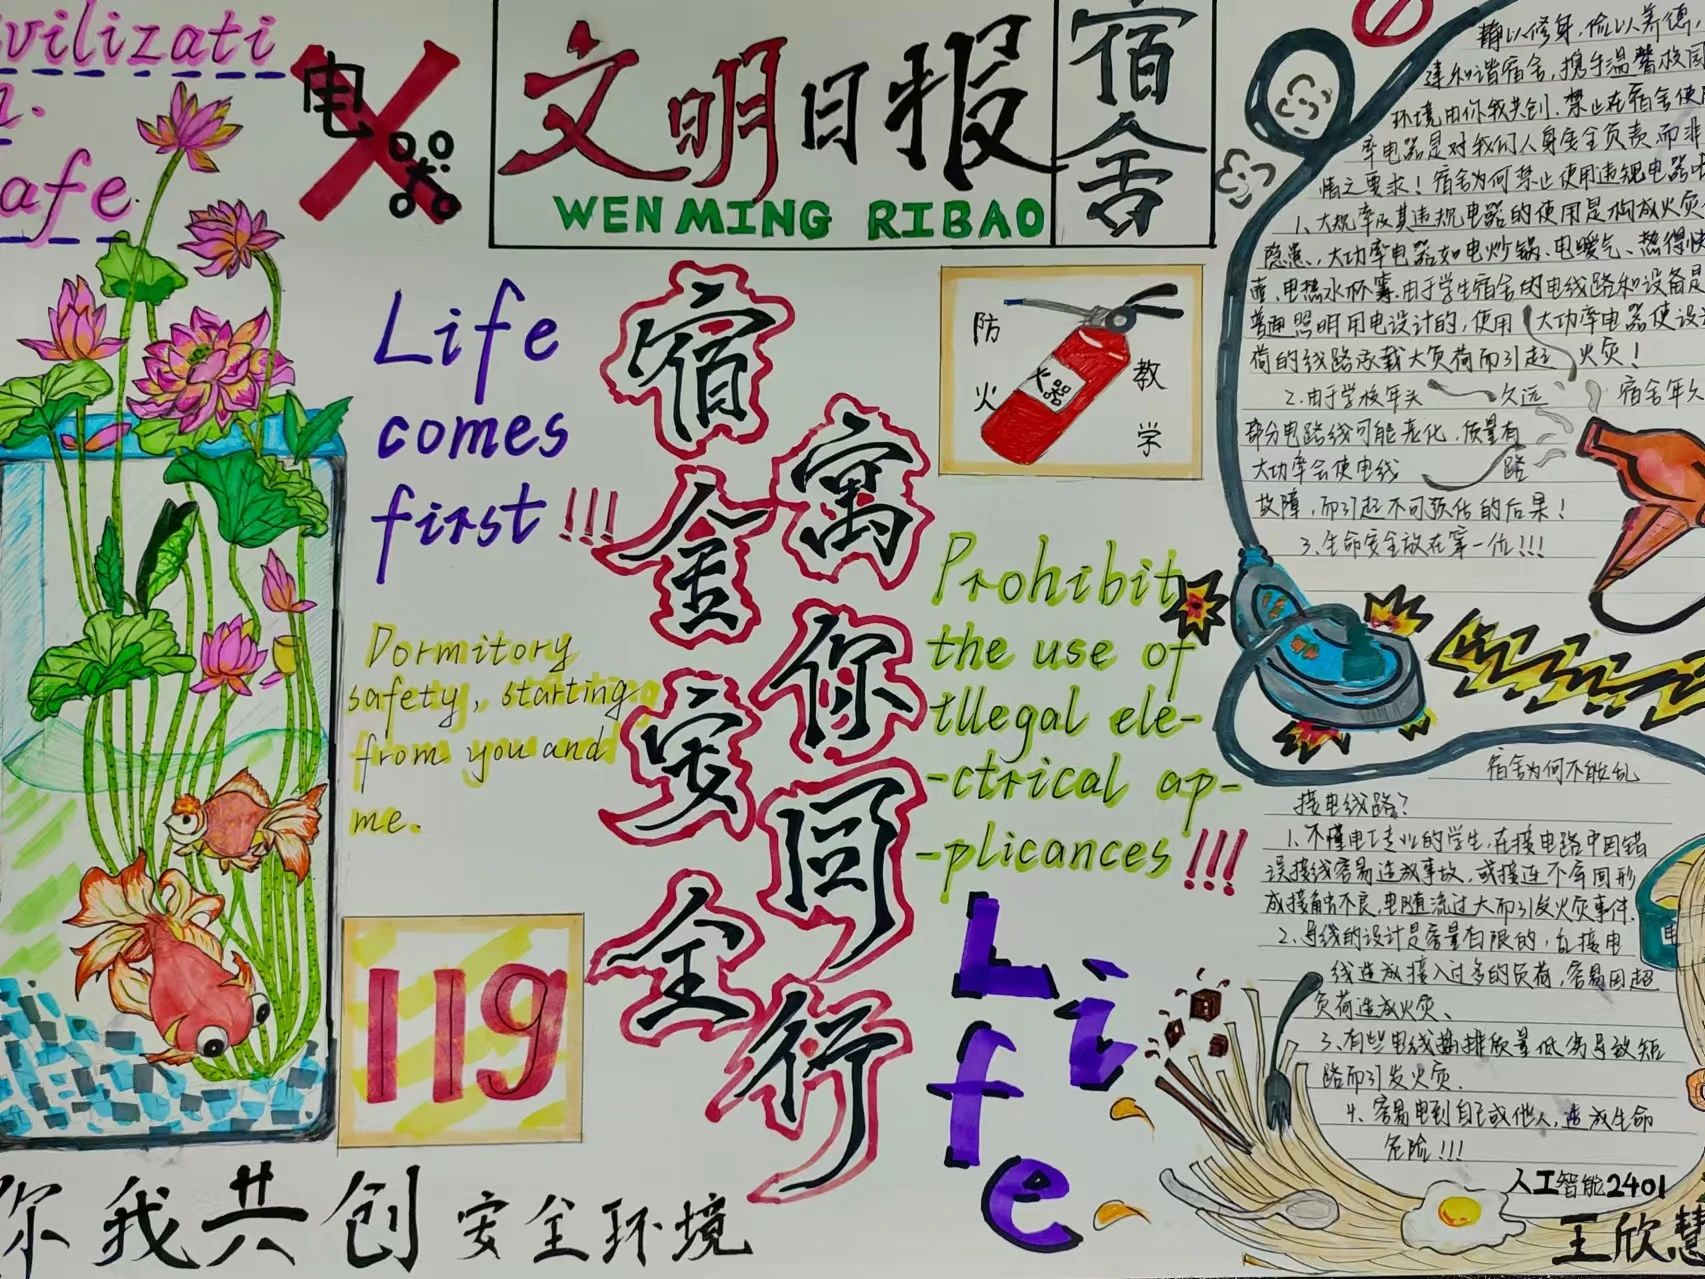 vilizati
afe.
电
器
文明日报
WEN MING RIBAO
宿舍
Life
comes
first!!!
Dormitory
safety, starting
from you and
me.
119
你我共创安全环境
宿舍安全
寓你同行
防火
教学
火器
Prohibit
the use of
illegal ele-
-ctrical ap-
-plicances!!!
Life
静以修身,俭以养德,
建和谐宿舍,携手温馨校园
环境由你我共创.禁止在宿舍使
率电器是对我们人身安全负责,而非
情之要求!宿舍为何禁止使用违规电器
1、大规率及其违规电器的使用是构成火灾
隐患,大功率电器如电炒锅、电暖气、热得快
壶、电热水杯等.由于学生宿舍的电线路和设备是
普通照明用电设计的,使用大功率电器使设
荷的线路承载大负荷而引起火灾!
2.由于学校年头久远 宿舍年久
部分电路线可能老化,质量有
大功率会使电线路
故障,而引起不可预估的后果!
3.生命安全放在第一位!!!
宿舍为何不能乱
接电线路?
1.不懂电工专业的学生,在接电路中因错
误接线容易造成事故,或接连不牢固形
成接触不良,电随流过大而引发火灾事件.
2.导线的设计是容量有限的,乱接电
线造成接入过多的负荷,容易因超
负荷造成火灾、
3、有些电线插排质量低劣导致短
路而引发火灾.
4.容易电到自己或他人,造成生命
危险!!!
人工智能2401
王欣慧